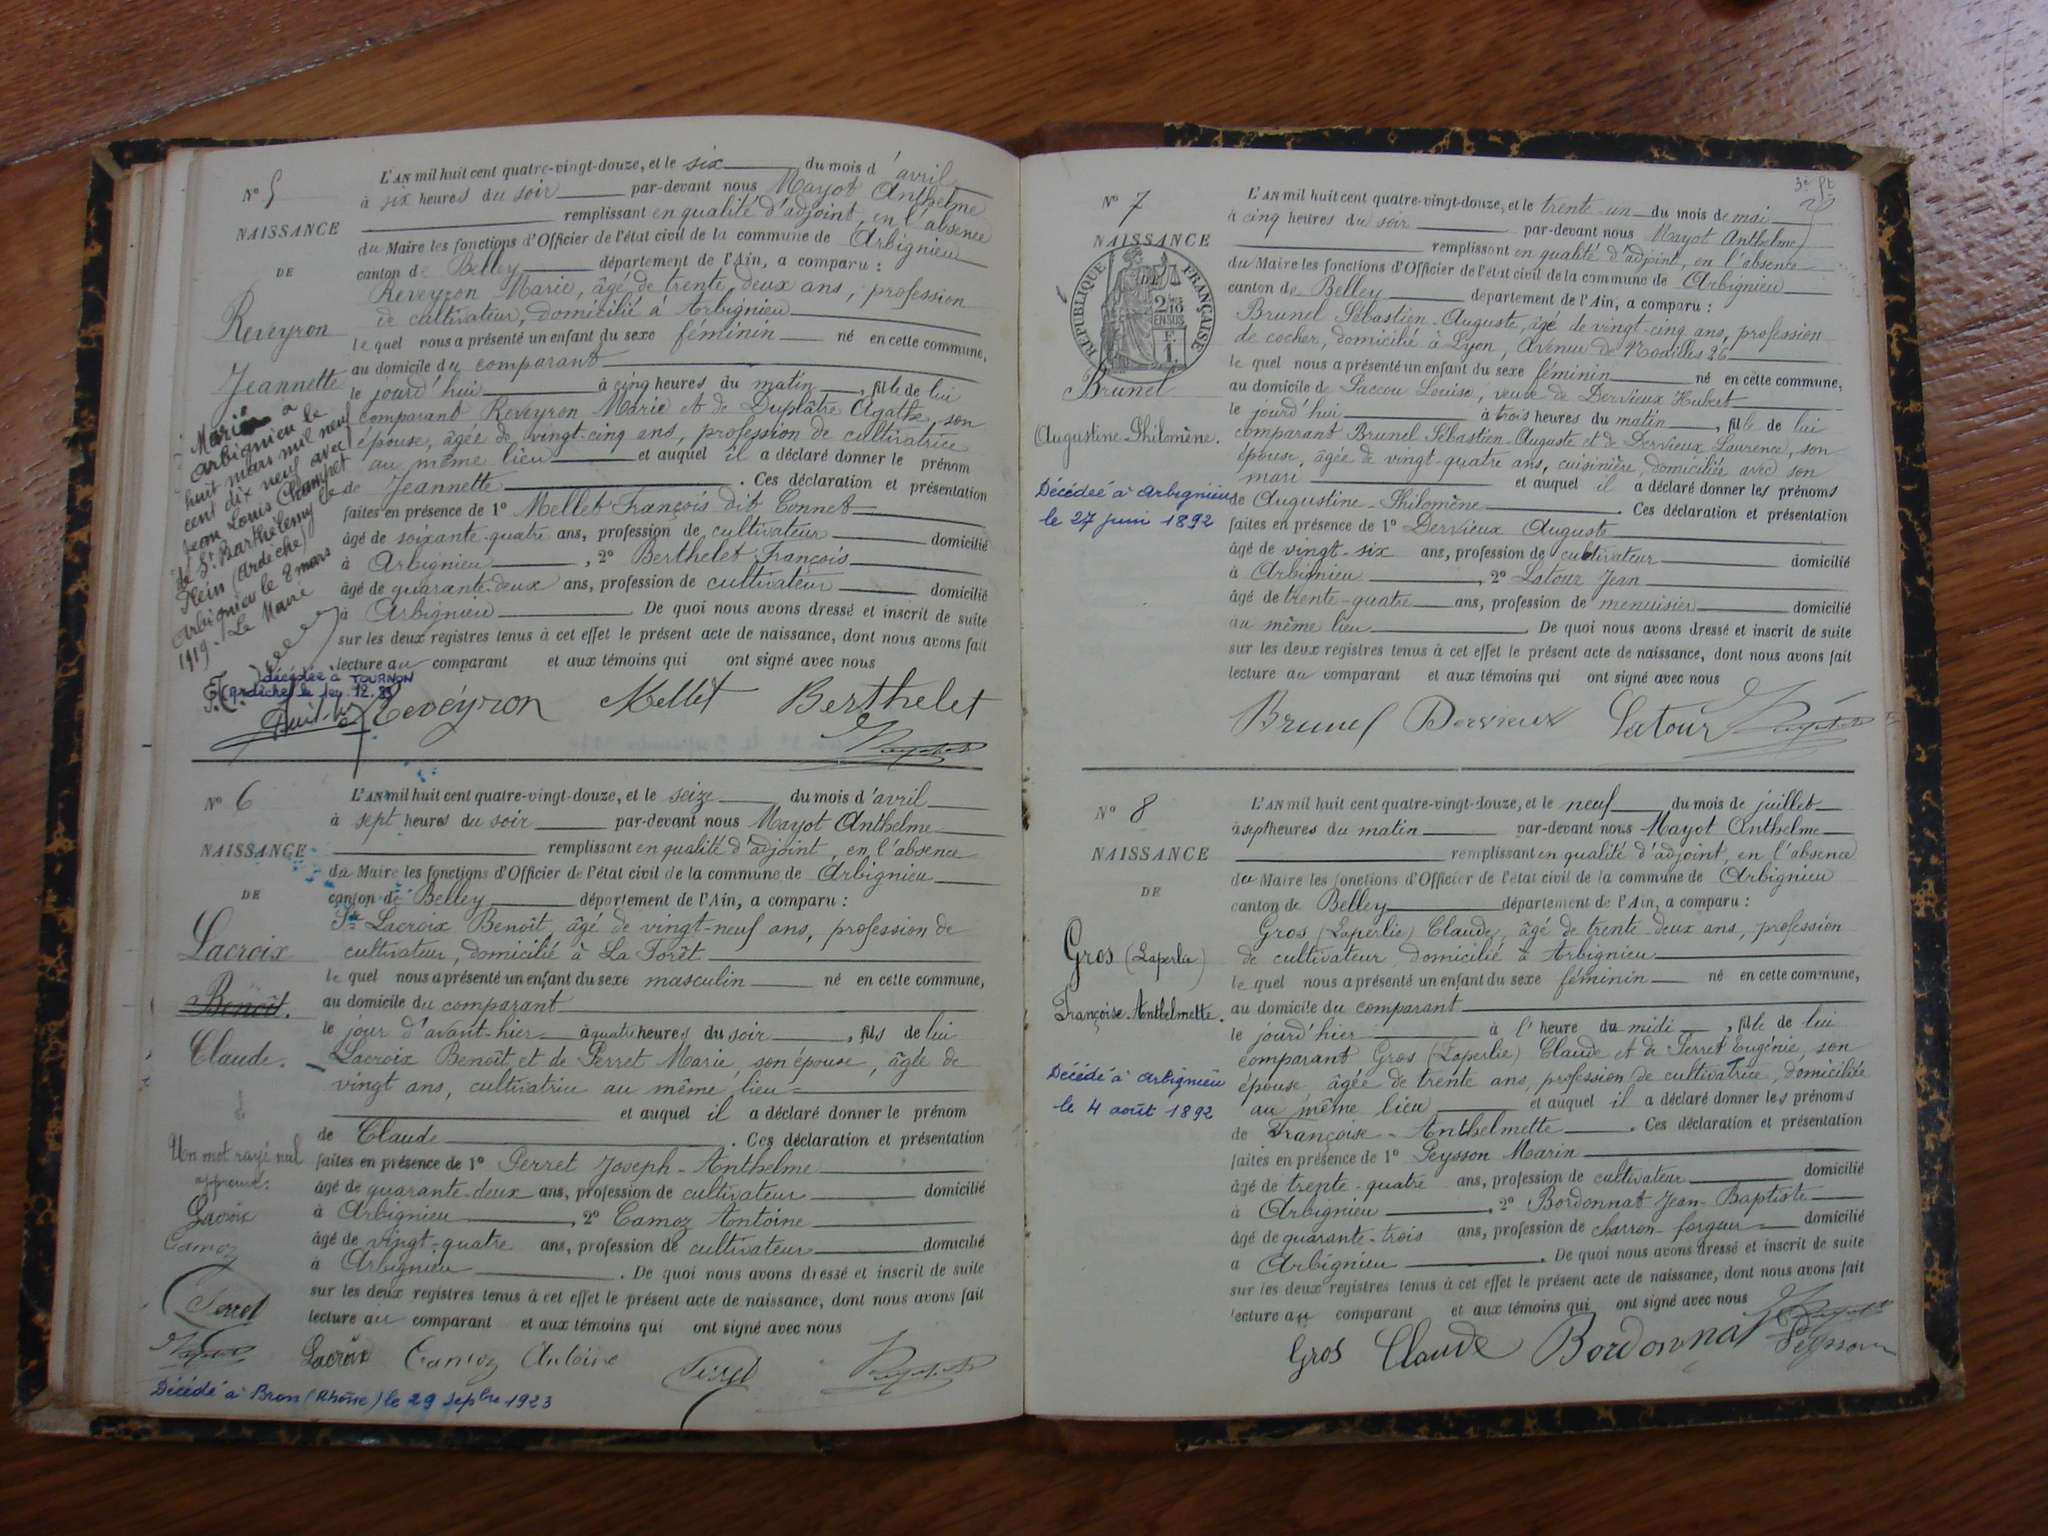 N° 5
NAISSANCE
DE
Reveyron
Jeannette
Mariée à
Arbignieu le
huit mars mil neuf
cent dix neuf avec
Jean Louis
de St Barthélemy le
Plein (Ardèche)
Arbignieu le 8 mars
1919. Le Maire
décédée à TOURNON
L'AN mil huit cent quatre-vingt-douze, et le six du mois d'avril
à six heures du soir par-devant nous Mayot Anthelme
remplissant en qualité d'adjoint, en l'absence
du Maire les fonctions d'Officier de l'état civil de la commune de Arbignieu
canton de Belley département de l'Ain, a comparu :
Reveyron Marie, âgé de trente deux ans, profession
de cultivateur, domicilié à Arbignieu
le quel nous a présenté un enfant du sexe féminin né en cette commune,
au domicile du comparant
le jourd'hui à cinq heures du matin, fille de lui
comparant Reveyron Marie et de Duplâtre Agathe, son
épouse, âgée de vingt-cinq ans, profession de cultivatrice
au même lieu et auquel il a déclaré donner le prénom
de Jeannette. Ces déclaration et présentation
faites en présence de 1° Mellet François dit Connet
âgé de soixante-quatre ans, profession de cultivateur domicilié
à Arbignieu, 2° Berthelet François
âgé de quarante-deux ans, profession de cultivateur domicilié
à Arbignieu. De quoi nous avons dressé et inscrit de suite
sur les deux registres tenus à cet effet le présent acte de naissance, dont nous avons fait
lecture au comparant et aux témoins qui ont signé avec nous
Reveyron Mellet Berthelet
N° 6
NAISSANCE
DE
Lacroix
Benoît.
Claude.
Un mot rayé nul
approuvé.
Lacroix
Camoz
Perret
L'AN mil huit cent quatre-vingt-douze, et le seize du mois d'avril
à sept heures du soir par-devant nous Mayot Anthelme
remplissant en qualité d'adjoint, en l'absence
du Maire les fonctions d'Officier de l'état civil de la commune de Arbignieu
canton de Belley département de l'Ain, a comparu :
Lacroix Benoît, âgé de vingt-neuf ans, profession de
cultivateur, domicilié à La Forêt
le quel nous a présenté un enfant du sexe masculin né en cette commune,
au domicile du comparant
le jour d'avant-hier à quatre heures du soir, fils de lui
Lacroix Benoît et de Perret Marie, son épouse, âgée de
vingt ans, cultivatrice au même lieu
et auquel il a déclaré donner le prénom
de Claude. Ces déclaration et présentation
faites en présence de 1° Perret Joseph-Anthelme
âgé de quarante-deux ans, profession de cultivateur domicilié
à Arbignieu, 2° Camoz Antoine
âgé de vingt-quatre ans, profession de cultivateur domicilié
à Arbignieu. De quoi nous avons dressé et inscrit de suite
sur les deux registres tenus à cet effet le présent acte de naissance, dont nous avons fait
lecture au comparant et aux témoins qui ont signé avec nous
Lacroix Camoz Antoine Perret
Décédé à Bron (Rhône) le 29 Septbre 1923
N° 7
NAISSANCE
DE
RÉPUBLIQUE FRANÇAISE
Brunel
Augustine-Philomène.
Décédée à Arbignieu
le 27 juin 1892
L'AN mil huit cent quatre-vingt-douze, et le trente-un du mois de mai
à cinq heures du soir par-devant nous Mayot Anthelme
remplissant en qualité d'adjoint, en l'absence
du Maire les fonctions d'Officier de l'état civil de la commune de Arbignieu
canton de Belley département de l'Ain, a comparu :
Brunel Sébastien-Auguste, âgé de vingt-cinq ans, profession
de cocher, domicilié à Lyon, Avenue de Noailles 26
le quel nous a présenté un enfant du sexe féminin né en cette commune,
au domicile de Paccou Louise, veuve de Dervieux Hubert
le jourd'hui à trois heures du matin, fille de lui
comparant Brunel Sébastien-Auguste et de Dervieux Laurence, son
épouse, âgée de vingt-quatre ans, cuisinière, domiciliée avec son
mari et auquel il a déclaré donner les prénoms
de Augustine-Philomène. Ces déclaration et présentation
faites en présence de 1° Dervieux Auguste
âgé de vingt-six ans, profession de cultivateur domicilié
à Arbignieu, 2° Latour Jean
âgé de trente-quatre ans, profession de menuisier domicilié
au même lieu. De quoi nous avons dressé et inscrit de suite
sur les deux registres tenus à cet effet le présent acte de naissance, dont nous avons fait
lecture au comparant et aux témoins qui ont signé avec nous
Brunel Dervieux Latour
N° 8
NAISSANCE
DE
Gros (Laperlie)
Françoise-Anthelmette.
Décédé à Arbignieu
le 4 août 1892
L'AN mil huit cent quatre-vingt-douze, et le neuf du mois de juillet
à sept heures du matin par-devant nous Mayot Anthelme
remplissant en qualité d'adjoint, en l'absence
du Maire les fonctions d'Officier de l'état civil de la commune de Arbignieu
canton de Belley département de l'Ain, a comparu :
Gros (Laperlie) Claude, âgé de trente deux ans, profession
de cultivateur, domicilié à Arbignieu
le quel nous a présenté un enfant du sexe féminin né en cette commune,
au domicile du comparant
le jourd'hier à l'heure du midi, fille de lui
comparant Gros (Laperlie) Claude et de Perret Eugénie, son
épouse âgée de trente ans, profession de cultivatrice, domiciliée
au même lieu et auquel il a déclaré donner les prénoms
de Françoise-Anthelmette. Ces déclaration et présentation
faites en présence de 1° Peysson Marin
âgé de trente-quatre ans, profession de cultivateur domicilié
à Arbignieu, 2° Bordonnat Jean-Baptiste
âgé de quarante-trois ans, profession de charron-forgeur domicilié
a Arbignieu. De quoi nous avons dressé et inscrit de suite
sur les deux registres tenus à cet effet le présent acte de naissance, dont nous avons fait
lecture au comparant et aux témoins qui ont signé avec nous
Gros Claude Bordonnat Peysson